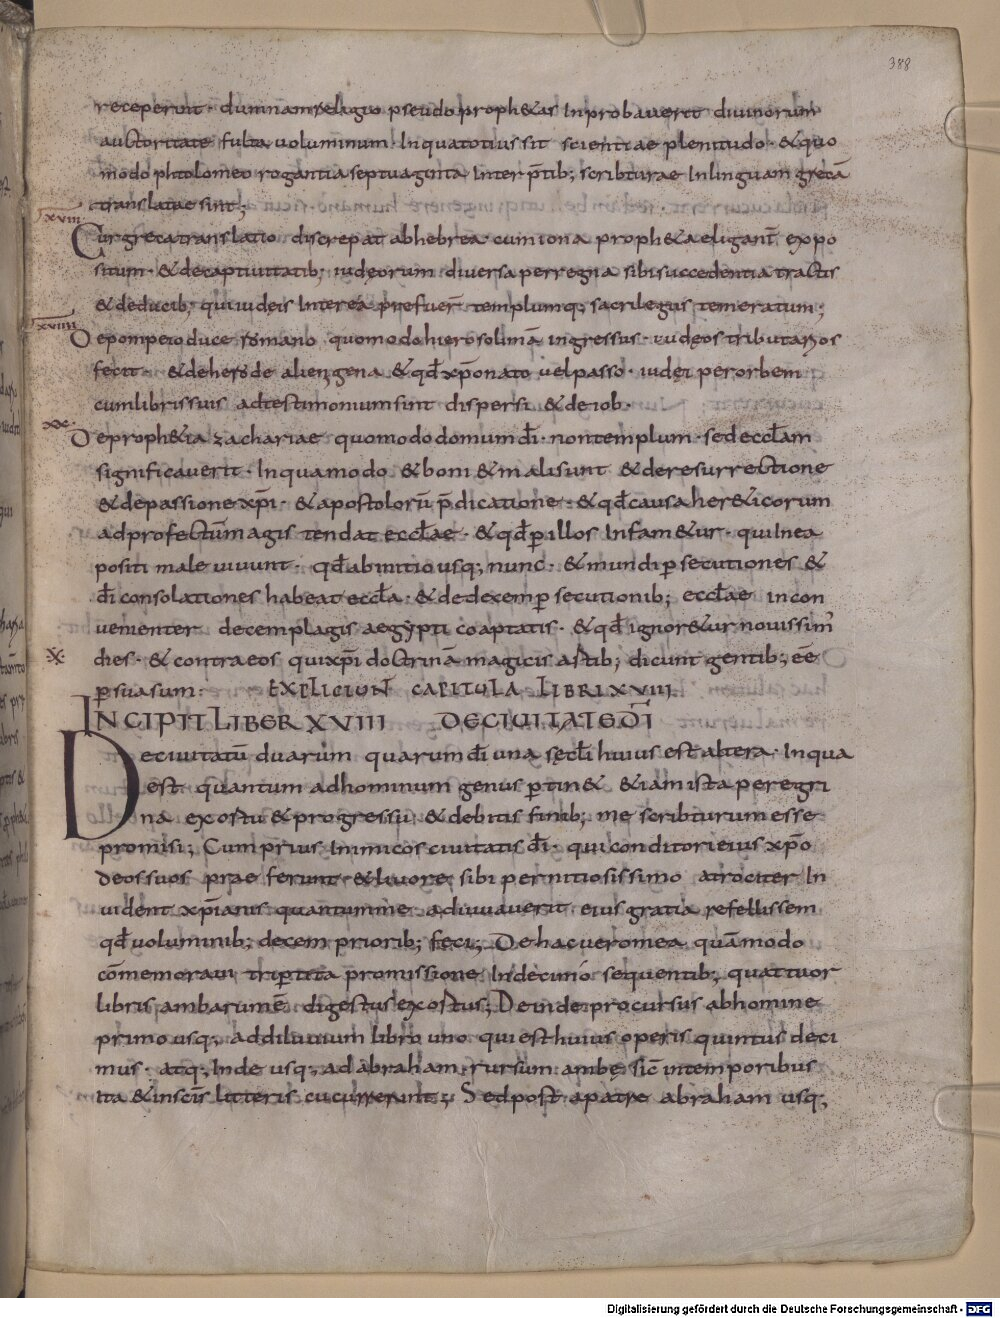 388
receperunt · dumnamreligio pseudo proph&as Inprobauerit diuinorum
auctoritate fulta uoluminum · Inquatotius sit scientiae plenitudo · &quo
modo phtolomeo rogantia septuaginta Inter p̄tib; scribturae Inlinguam grecā
translatae sint;
xviii Cur greca translatio discrepat abhebrea · cumiona proph&a eligant̄ expo
situm · &decaptiuitatib; iudęorum diuersa perregna sibisuccedentia tractis
&deducib; quiiudeis Interea prefuer̄ templumq; sacrilegiis temeratum;
xviiii De pompeio duce romano quomodo hierosolimā ingressus · iudęos tributarios
fecit · &deherode alienigena &qđ xp̄o nato uelpasso · iudęi perorbem
cumlibrissuis adtestimoniumsint dispersi &deiob ·
xx · De proph&ia zachariae quomodo domum dī · nontemplum · sedecclam
significauerit · Inquamodo &boni &malisunt &deresurrectione
&depassione xp̄i · &apostolorū p̄dicatione · &qđ causa her&icorum
adprofectum̄ magis tendat ecclae · &qđ p illos Infam&ur · quiInea
positi male uiuunt · qđ abinitio usq; nunc · &mundi p secutiones &
dī consolationes habeat eccla · &dedecem p secutionib; ecclae incon
uenienter decemplagis aegypti coaptatis · &qđ ignor&ur nouissim'
dies · &contraeos quixp̄i doctrinā magicis astib; dicunt gentib; eē
p suasum: EXPLICIUNT CAPITULA LIBRI XVIII
INCIPIT LIBER XVIII DECIUITATE DĪ
Deciuitatū duarum quarum dī una secli huius est altera · Inqua
est quantum adhominum genus p tin& &iamista peregri
na exostu &progressu · &debitis finib; me scribturum esse
promisi; Cumprius Inimicos ciuitatis dī · quiconditorieius xp̄o
deossuos prae ferunt &liuore sibi pernitiosissimo atrociter In
uident xp̄ianis quantumme adiuuauerit eius gratia refellissem
qđ uoluminib; decem priorib; feci; De hacueromea quāmodo
cōmemoraui tripertita promissione Indecimo sequentib; quattuor
libris ambarumē digestus exostus; Deinde procursus abhomine
primo usq; addiluuium libro uno quiesthuius operis quintus deci
mus · atq; Inde usq; ad abraham · rursum ambę sic̄ intemporibus
ita &inscīs litteris cucurrerunt; Sedpost apatre abraham usq;
Digitalisierung gefördert durch die Deutsche Forschungsgemeinschaft - DFG